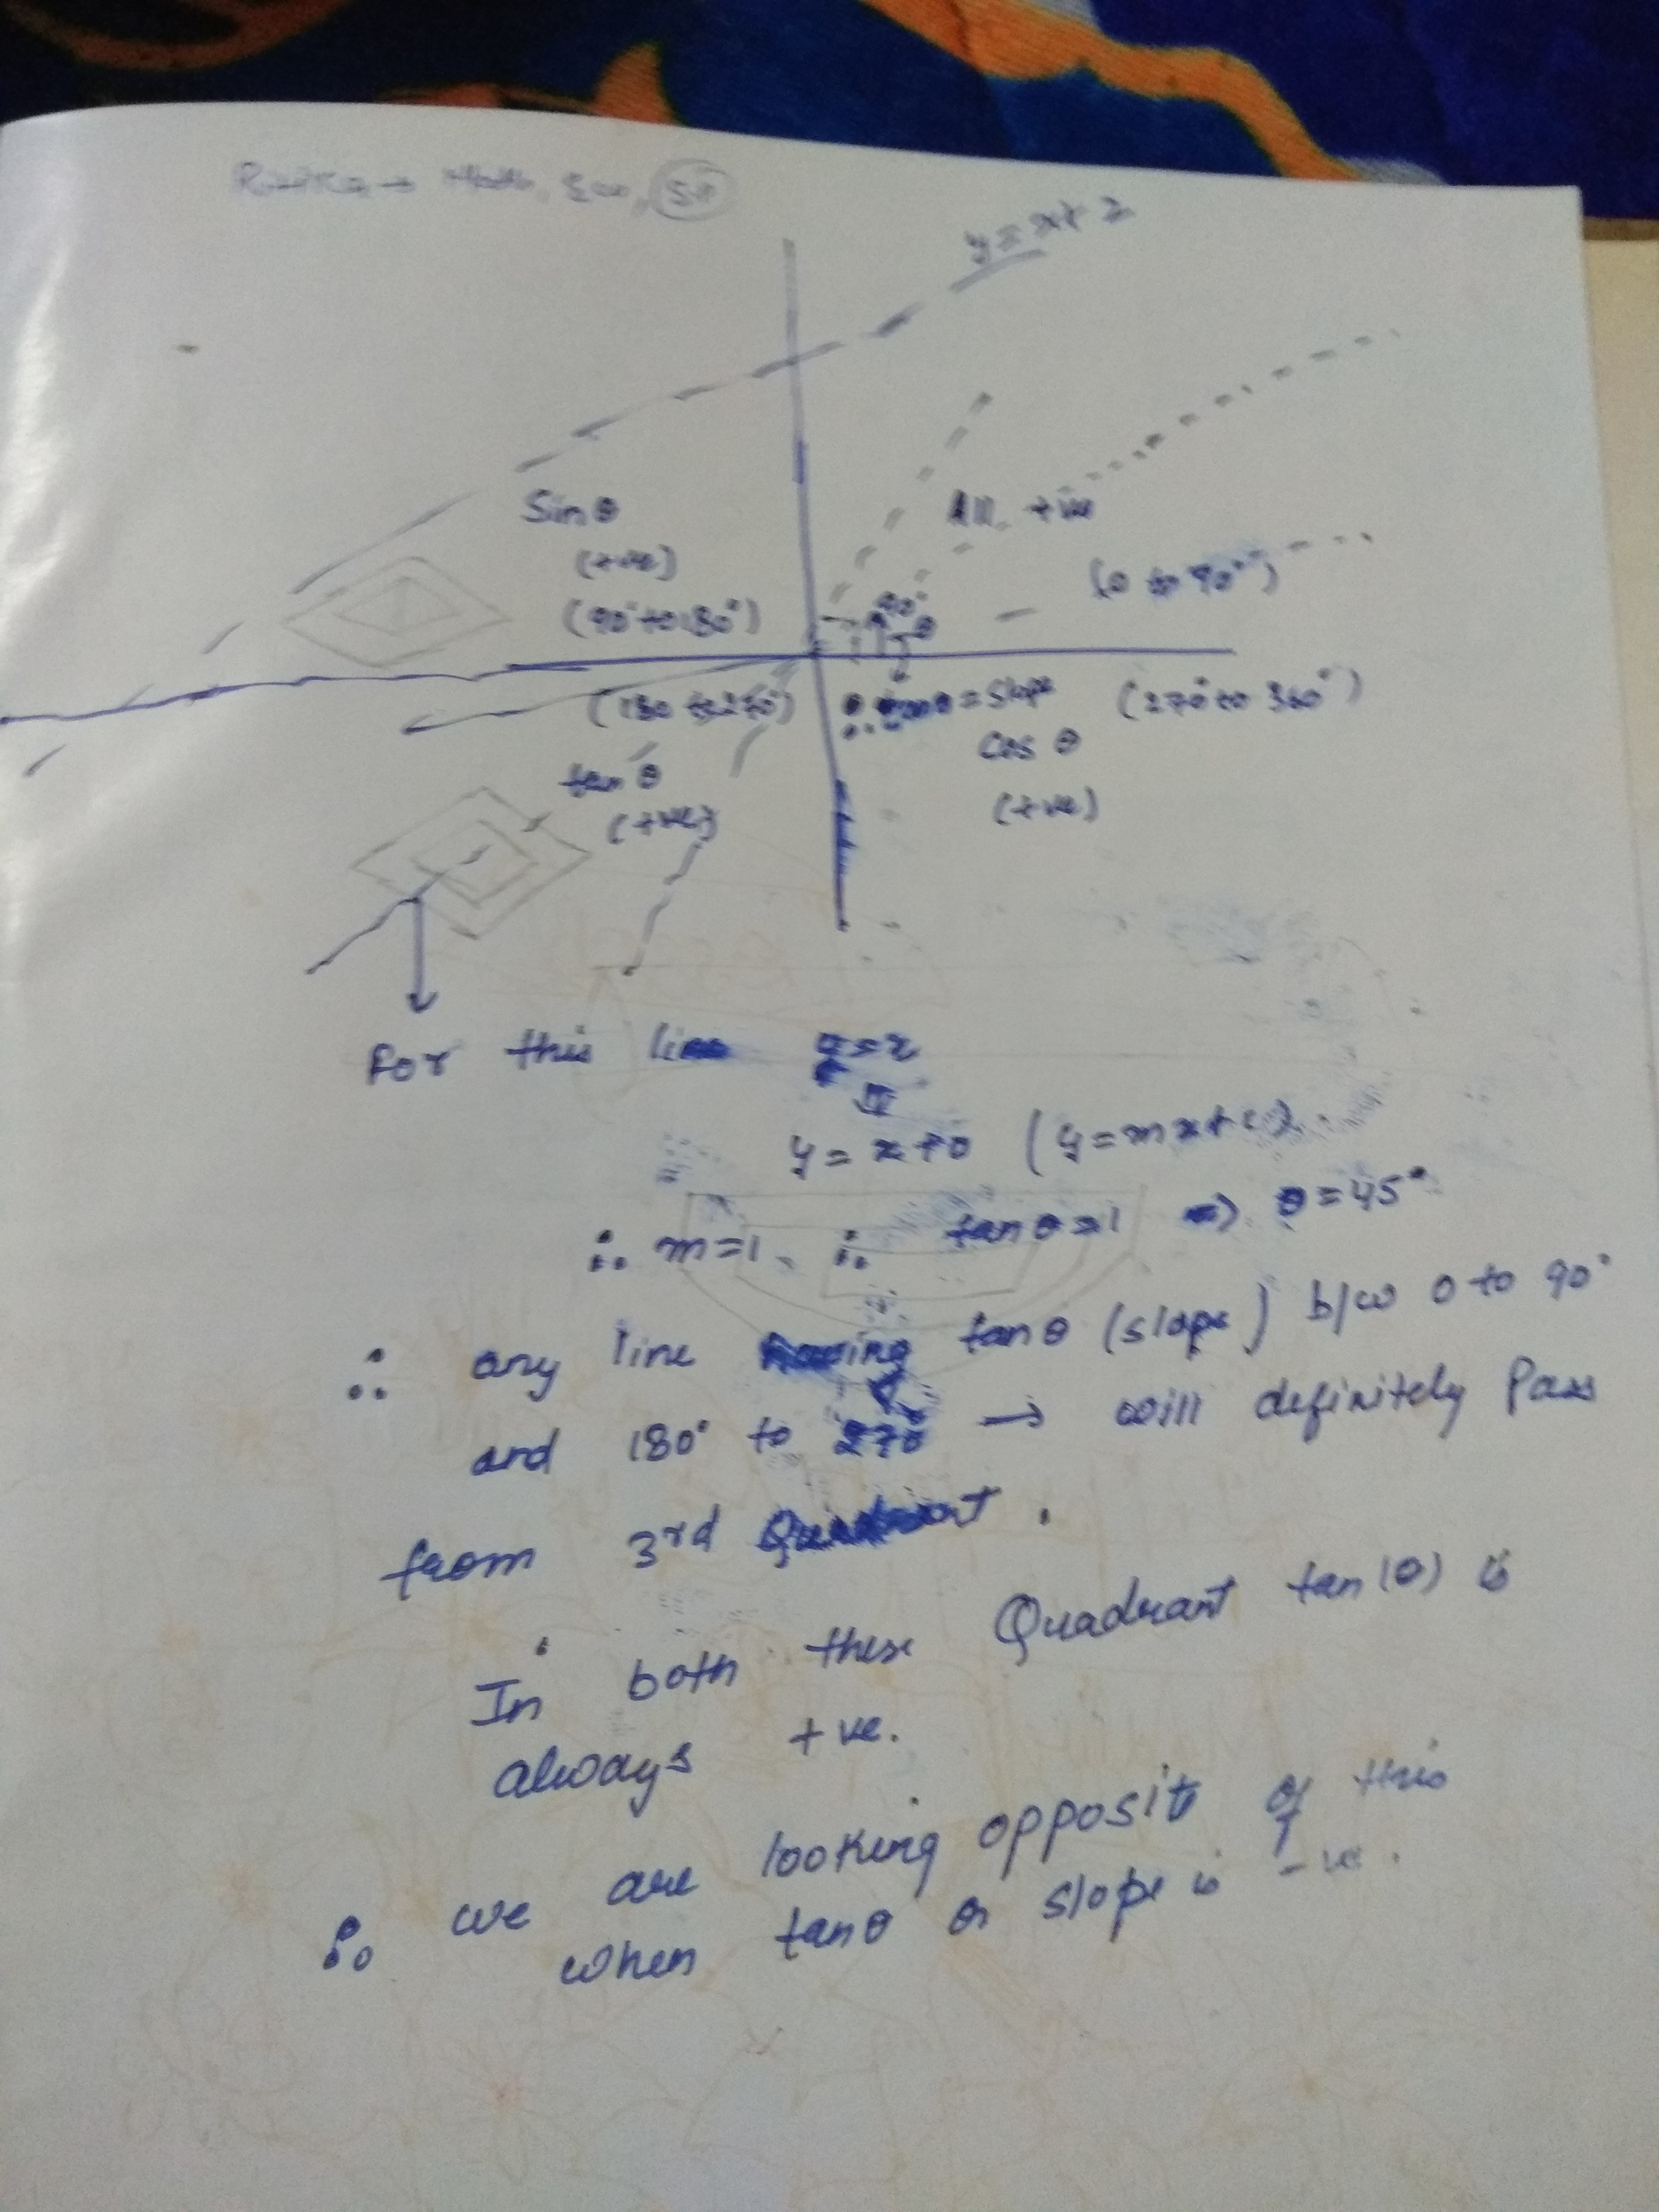 y = x + 2
Sin θ
(+ve)
(90° to 180°)
All +ve
(0 to 90°)
90°
θ
(180 to 270°)
= Slope
(270° to 360°)
cos θ
(+ve)
tan θ
(+ve)
For this line
y = x + 0 (y = mx + c)
∴ m = 1, ∴ tan θ = 1 ⇒ θ = 45°
∴ any line having tan θ (slope) b/w 0 to 90°
and 180° to 270° → will definitely Pass
from 3rd Quadrant.
In both these Quadrant tan (θ) is
always +ve.
∴ we are looking opposit of this
when tan θ or slope is -ve.